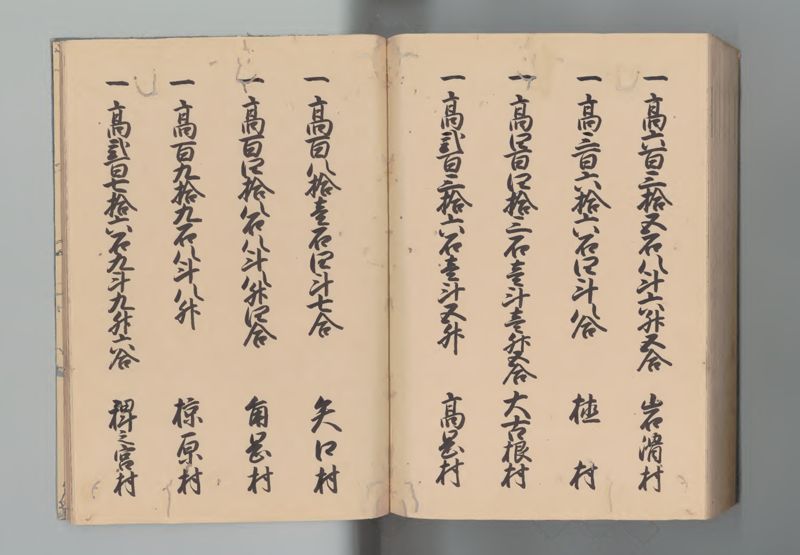 一 高六百三拾五石八斗六升五合 岩滑村
一 高三百六拾六石四斗八合 植村
一 高四百四拾三石壱斗壱升五合 大古根村
一 高弐百三拾六石壱斗五升 高岡村
一 高百八拾壱石四斗七合 矢口村
一 高百四拾八石八斗八升四合 角岡村
一 高百九拾九石八斗八升 椋原村
一 高弐百七拾六石九斗九升六合 稗之宮村